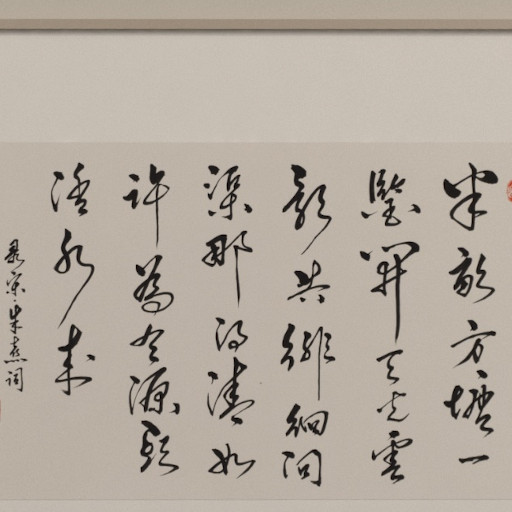 半畝方塘一
鑒開天光雲
影共徘徊問
渠那得清如
許為有源頭
活水來
录宋朱熹詞